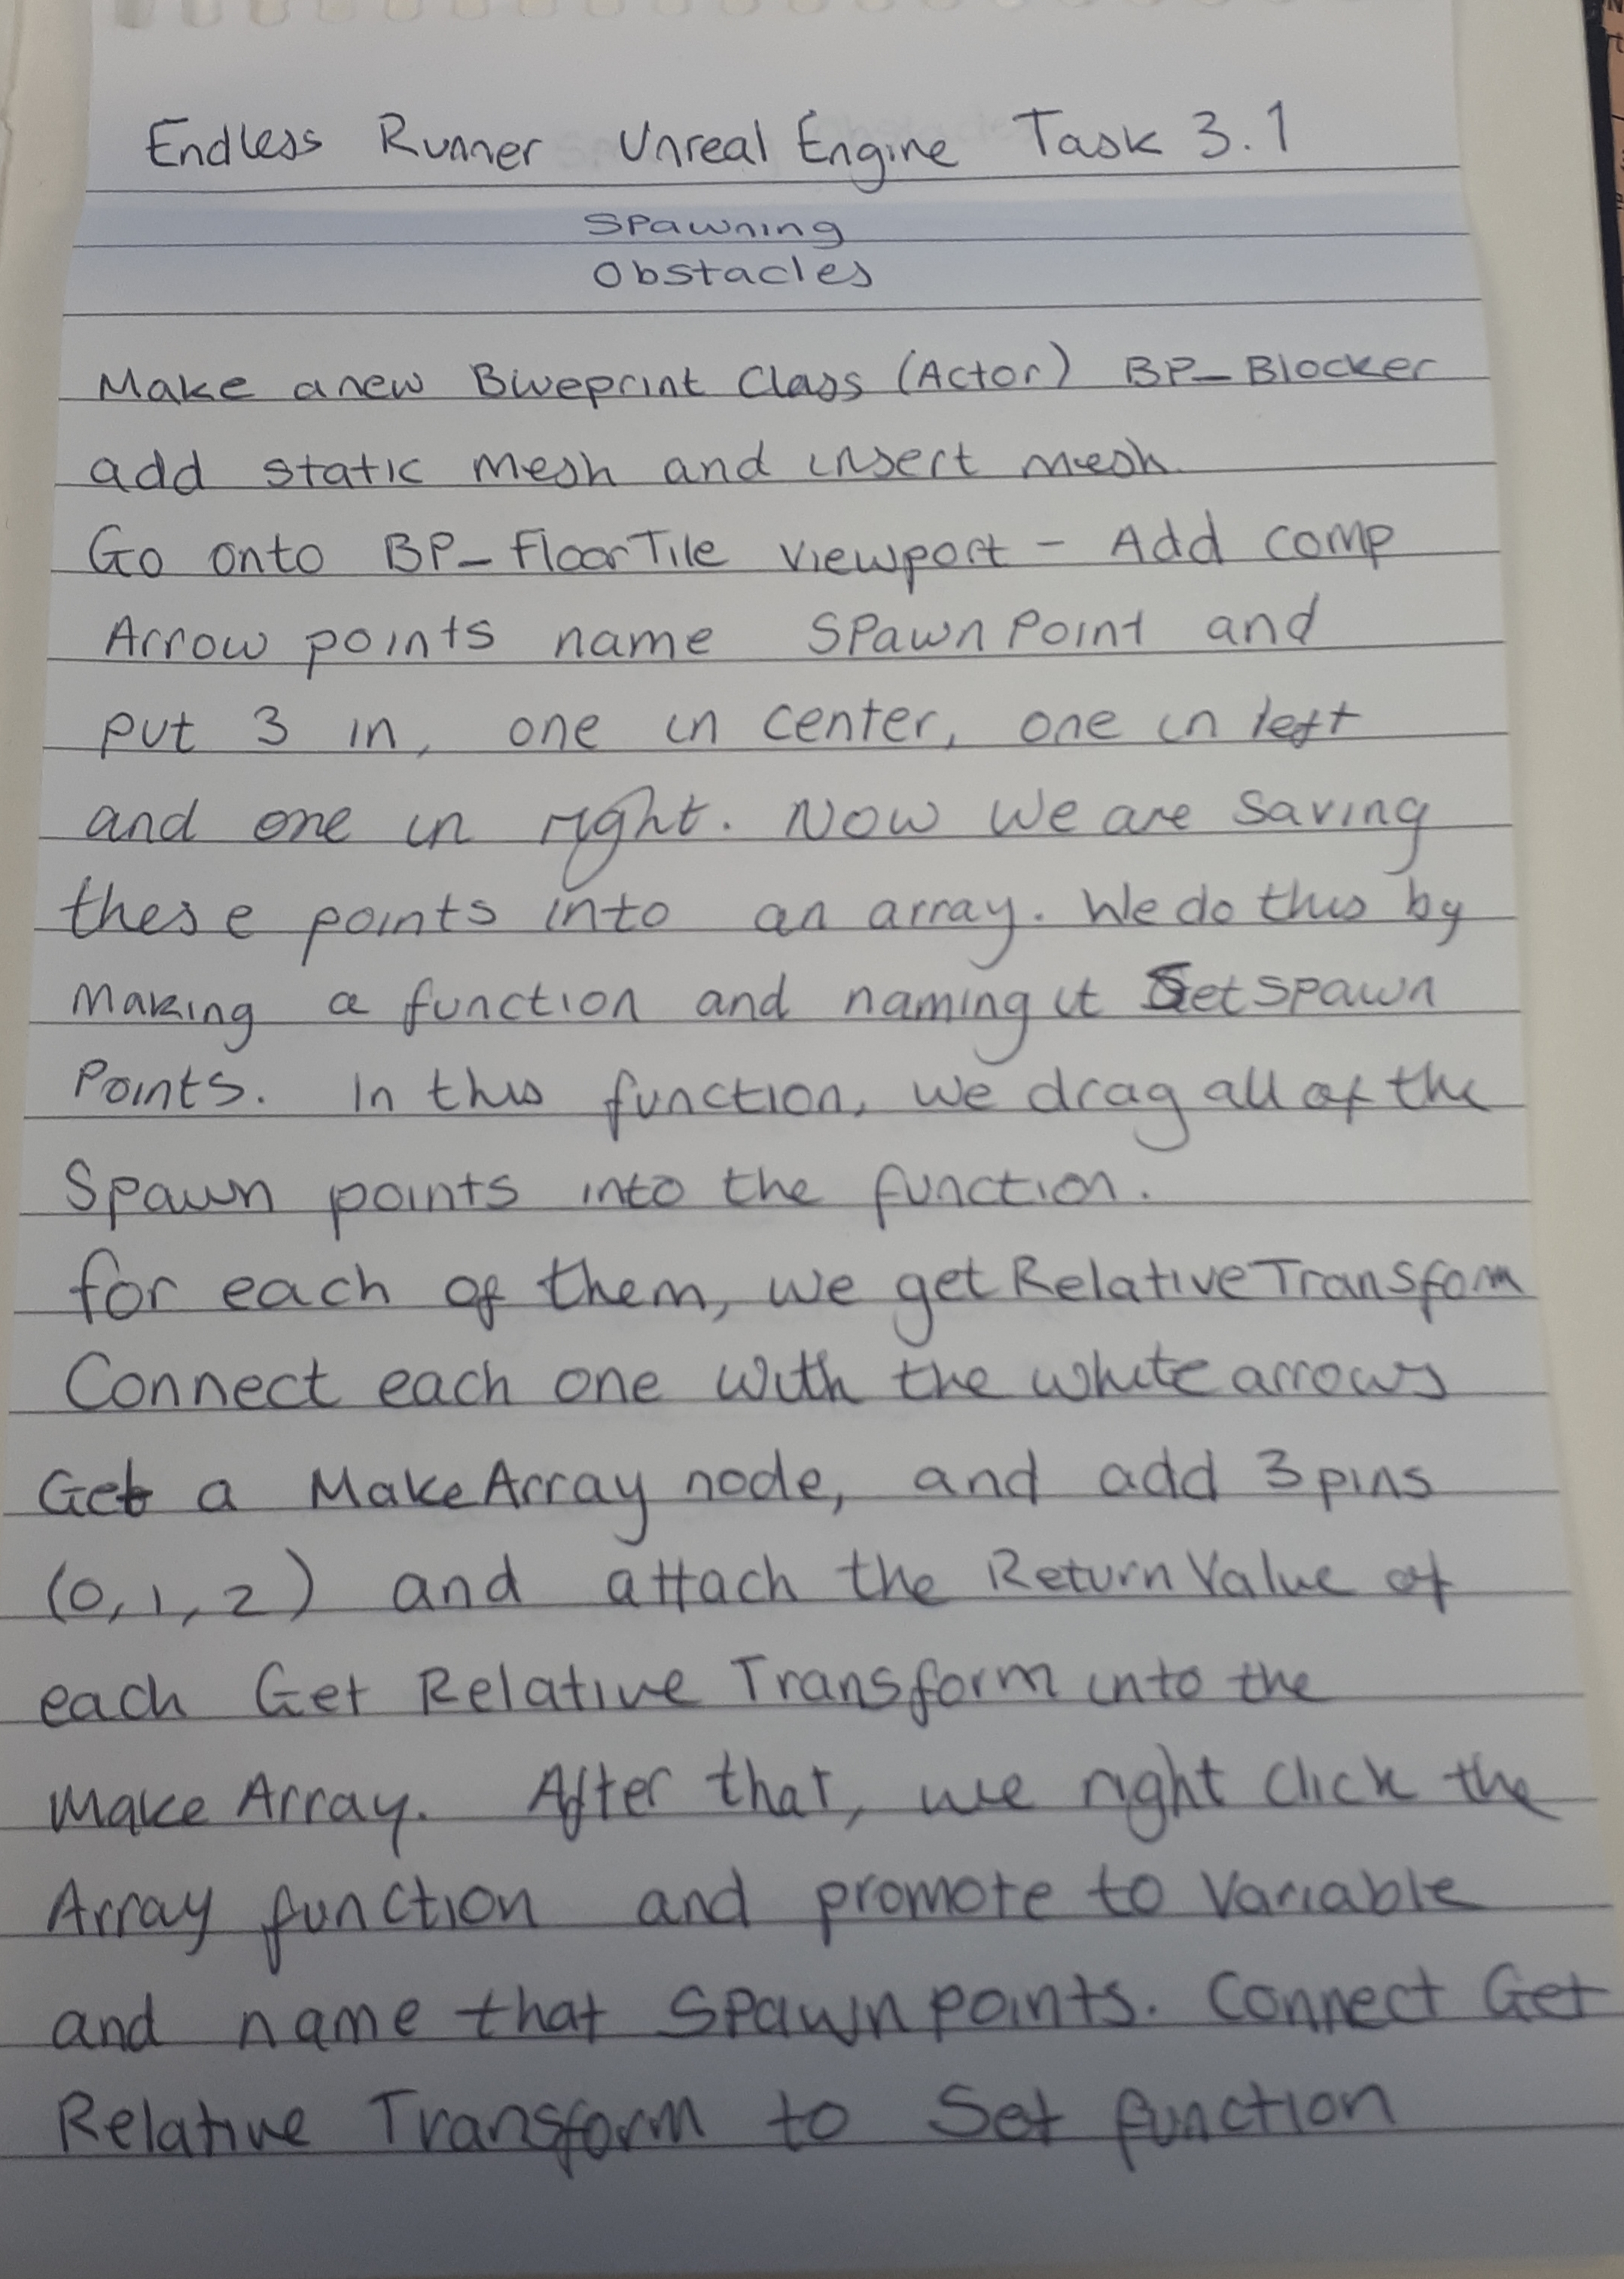 Endless Runner Unreal Engine Task 3.1
Spawning
Obstacles
Make a new Blueprint Class (Actor) BP_Blocker
add static mesh and insert mesh
Go onto BP_FloorTile viewport - Add comp
Arrow points name SpawnPoint and
put 3 in, one in center, one in left
and one in right. Now we are saving
these points into an array. We do this by
making a function and naming it Setspawn
Points. In this function, we drag all of the
Spawn points into the function.
for each of them, we get RelativeTransfom
Connect each one with the white arrows
Get a MakeArray node, and add 3 pins
(0, 1, 2) and attach the Return Value of
each Get Relative Transform into the
Make Array. After that, we right click the
Array function and promote to variable
and name that Spawnpoints. Connect Get
Relative Transform to Set function